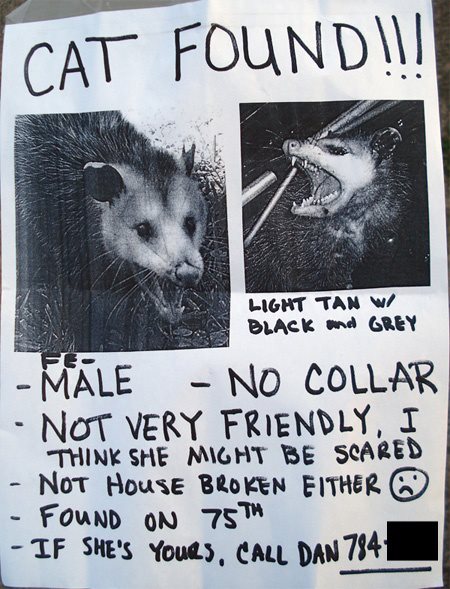 CAT FOUND!!!
LIGHT TAN W/
BLACK and GREY
FE-
- MALE - NO COLLAR
- NOT VERY FRIENDLY, I
THINK SHE MIGHT BE SCARED
- NOT HOUSE BROKEN EITHER
- FOUND ON 75TH
- IF SHE'S YOURS, CALL DAN 784-